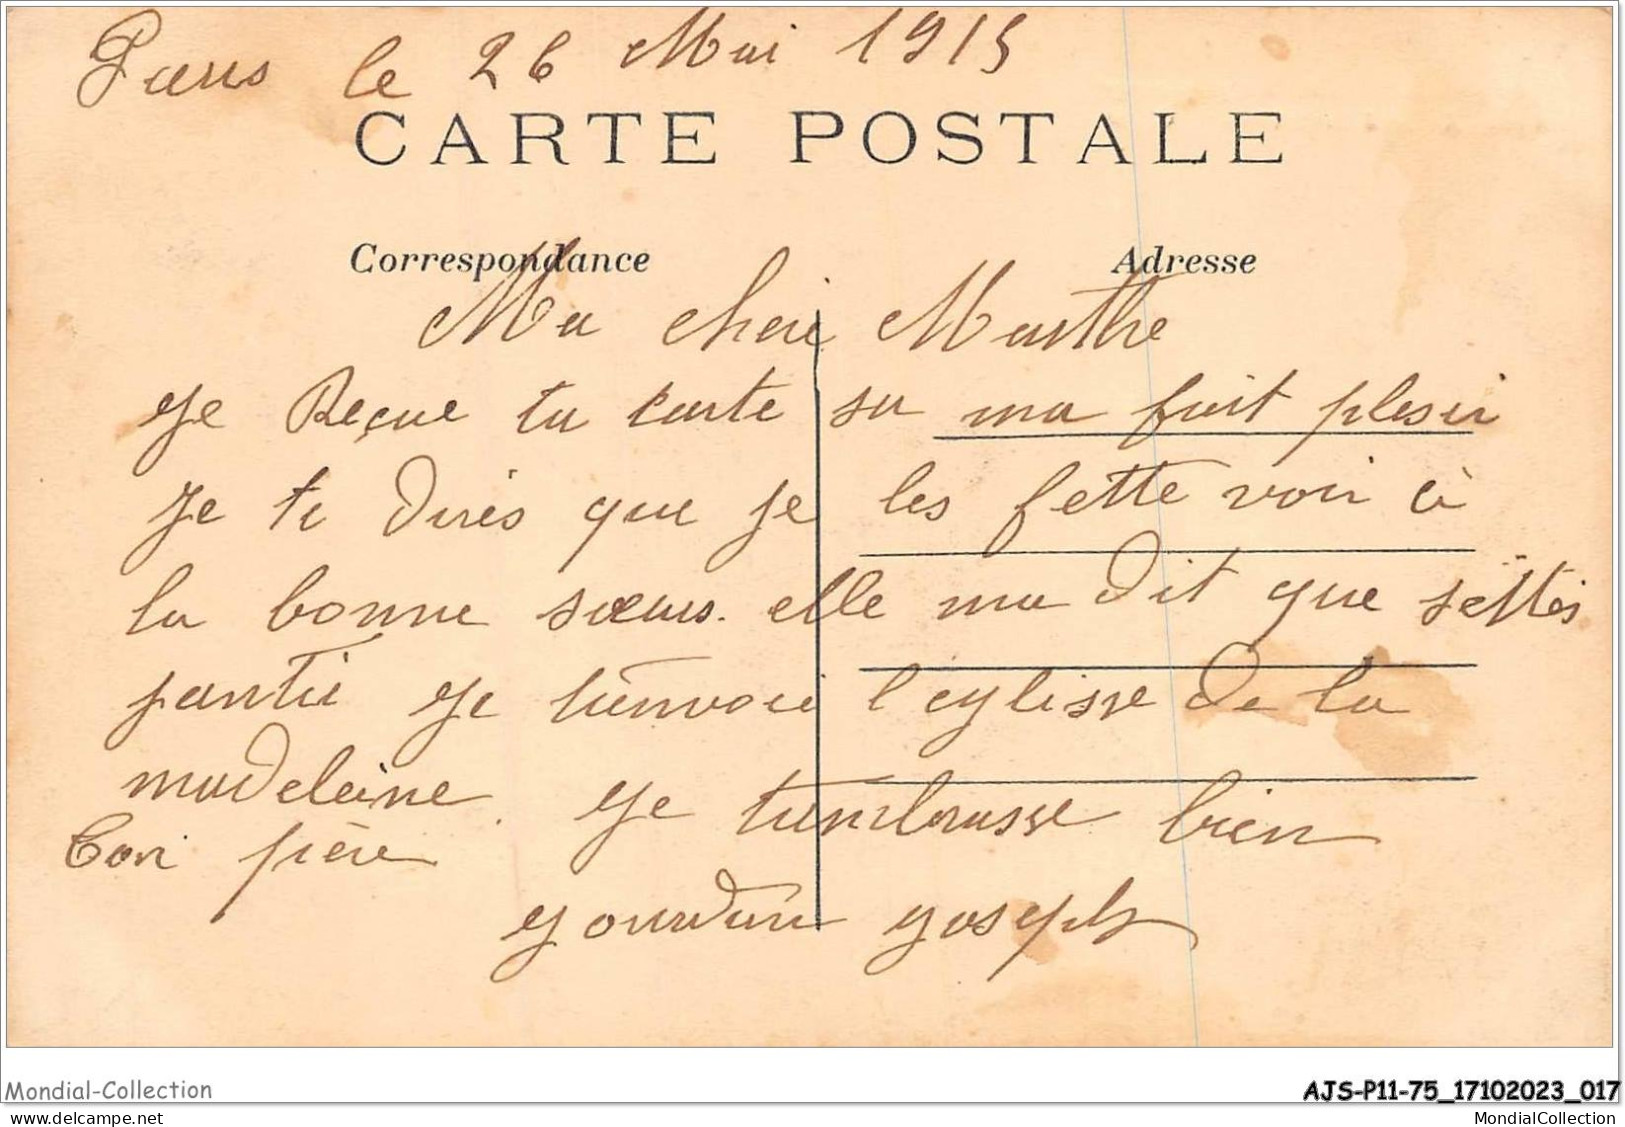 Paris le 26 Mai 1915
CARTE POSTALE
Correspondance
Adresse
Ma cheri Marthe
Je Reçue ta carte sa ma fait plesir
Je te dires que je les fette voir à
la bonne sœurs. elle ma dit que settes
partie Je t'envoie l'eglisse de la
madeleine. Je t'embrasse bien
Ton frère
Jourdan Joseph
Mondial-Collection
AJS-P11-75_17102023_017
MondialCollection